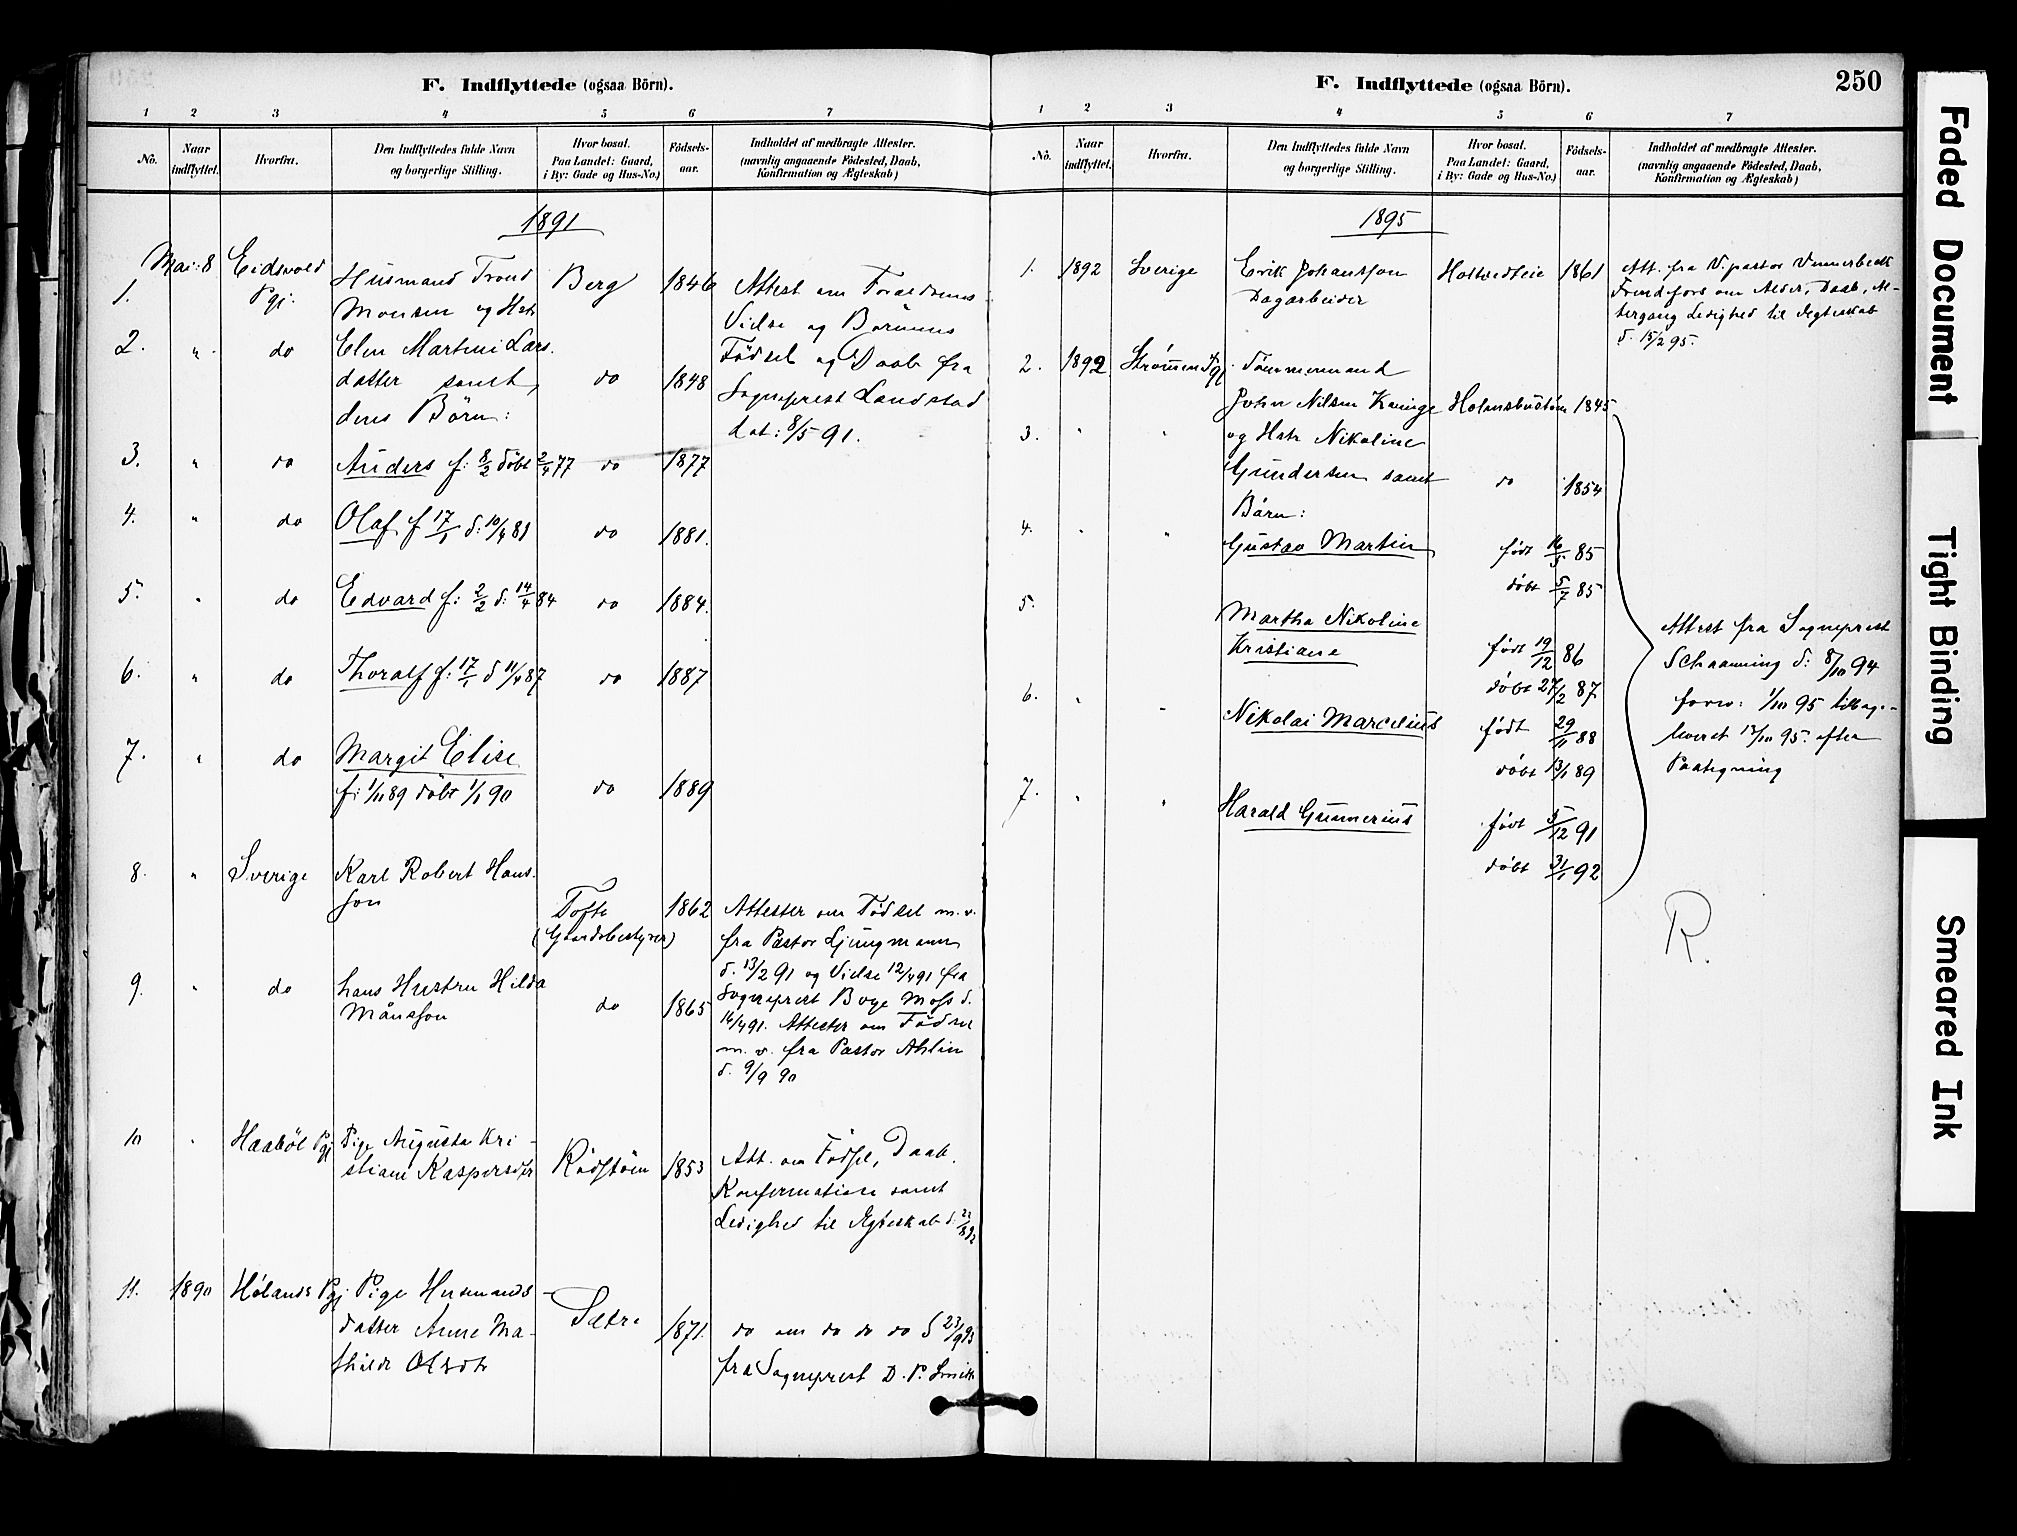 F. Indflyttede (ogsaa Börn).
1 2 3 4 5 6 7
No. Naar indflyttet. Hvorfra. Den Indflyttedes fulde Navn og borgerlige Stilling. Hvor bosat. Paa Landet: Gaard, i By: Gade og Hus-No.) Födsels-aar. Indholdet af medbragte Attester. (navnlig angaaende Födested, Daab, Konfirmation og Ægteskab)
1891
Mai: 8 Eidsvold
1. Pgj. Husmand Trond Berg 1846 Attest om Forældrenes
Monsen og Hstr Vielse og Börnenes
2. " do Elen Martine Lars. Födsel og Daab fra
datter samt do 1848 Sognepresst Landstad
deres Börn: dat: 8/5 91.
3. " do Anders f: 8/2 döbt 2/4 77 do 1877
4. " do Olaf f 17/1 d: 10/4 81 do 1881.
5. " do Edvard f: 2/2 d: 14/4 84 do 1884.
6. " do Thoralf f: 17/1 d 11/4 87 do 1887
7. " do Margit Elise
f: 1/11 89 döbt 1/1 90 do 1889
8. " Sverige Karl Robert Hans-
son Tofte 1862 Attester om Födsel m. v.
(Gaardsbestyrer) fra Pastor Ljungmann
d. 13/2 91 og Vielse 12/4 91 fra
9. " do hans Hustru Hilda Sogneprest Boye Moss d.
Månsson do 1865 14/4 91. Attester om Födsel
m. v. fra Pastor Ahlin
d. 9/9 90
10 " Haaböl Pgj Pige Augusta Kri-
stiane Kaspersdtr Rödstöen 1853 Att. om Födsel, Daab,
Konfirmation samt
Ledighed til Ægteskab d:
11. 1890 Hölands Pgj Pige Husmands-
datter Anne Ma- Sætre 1871. do om do do do d 23/9 95
thilde Olsdtr fra Sogneprest D. P. Smith
F. Indflyttede (ogsaa Börn). 250
1 2 3 4 5 6 7
No. Naar indflyttet. Hvorfra. Den Indflyttedes fulde Navn og borgerlige Stilling. Hvor bosat. Paa Landet: Gaard, i By: Gade og Hus-No.) Födsels-aar. Indholdet af medbragte Attester. (navnlig angaaende Födested, Daab, Konfirmation og Ægteskab)
1895
1. 1892 Sverige Erik Johansson Holtvedteie 1861 Att. fra V. pastor
Dagarbeider om Alder, Daab, Al-
tergang Ledighed til Ægteskab
d. 15/2 95.
2. 1892 Strömm Pgj. Tömmermand
John Nilsen Holmsbustöen 1845
3. " " og Hstr Nikoline
Gundersen samt do 1854
Börn:
4. " " Gustav Martin født 16/5 85
döbt 5/7 85
5. Martha Nikoline
Kristiane født 19/12 86
döbt 27/2 87
6. " " Nikolai Marcelius født 29/11 88
döbt 13/1 89
7. " " Harald Gunnerius født 5/12 91
döbt 31/1 92
Attest fra Sogneprest
Schanning d: 8/10 94
forev: 1/10 95 tilbage-
leveret 17/10 95. efter
Paategning
R.
Faded Document
Tight Binding
Smeared Ink